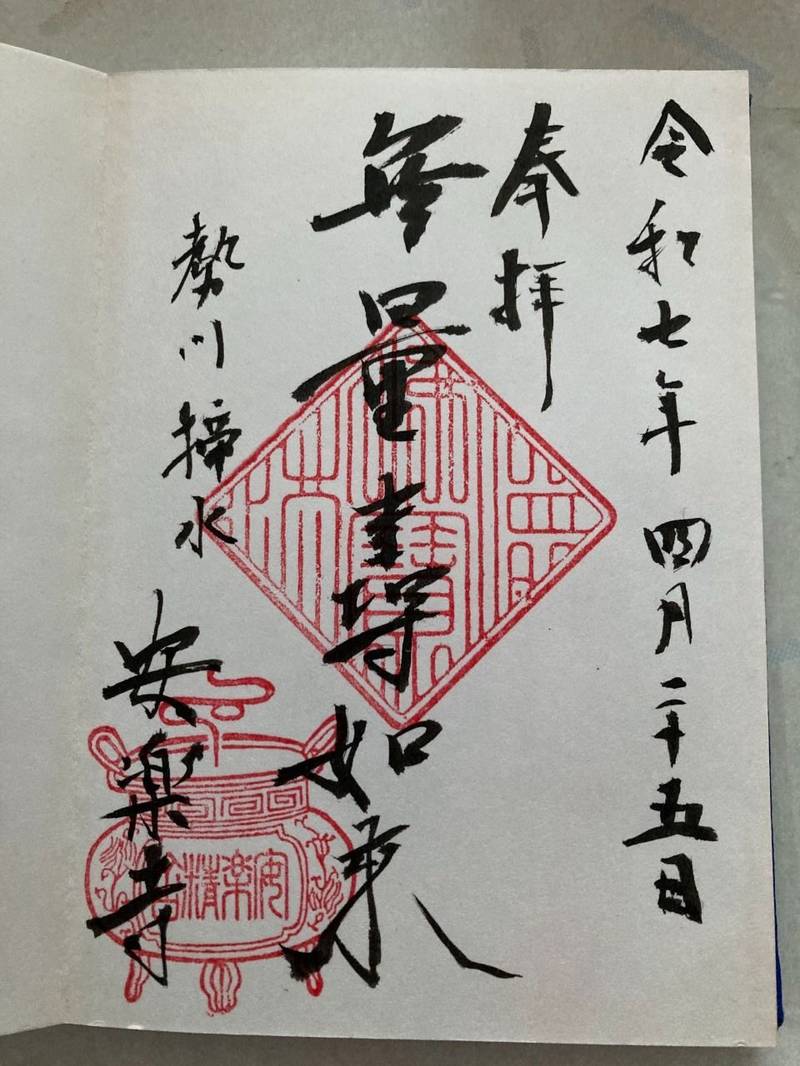 令和七年四月二十五日
奉拝
無量壽如来
勢川 水
安楽寺
安楽精舎